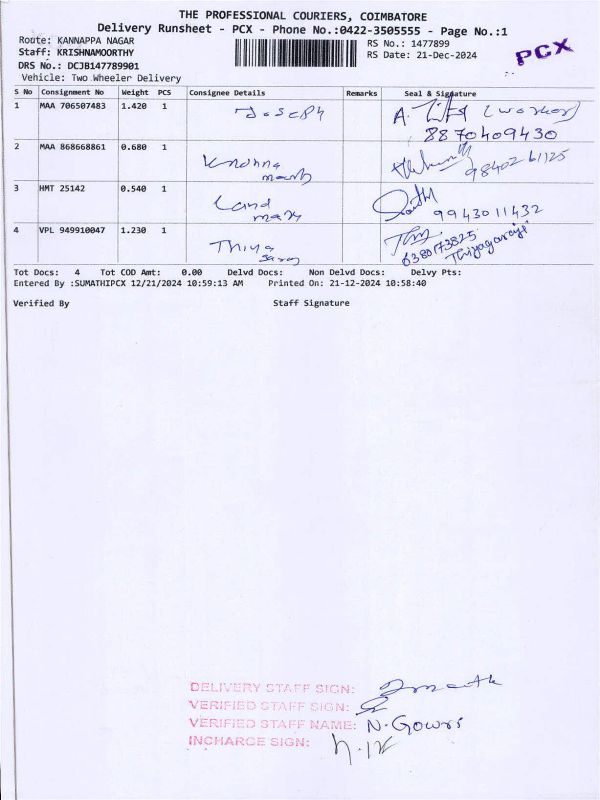 THE PROFESSIONAL COURIERS, COIMBATORE
Delivery Runsheet - PCX - Phone No.:0422-3505555 - Page No.:1
Route: KANNAPPA NAGAR
RS No.: 1477899
PCX
Staff: KRISHNAMOORTHY
RS Date: 21-Dec-2024
DRS No.: DCJB147789901
Vehicle: Two Wheeler Delivery
S No Consignment No Weight PCS Consignee Details Remarks Seal & Signature
1 MAA 706507483 1.420 1 Joseph A. (worker)
8870409430
2 MAA 868668861 0.680 1 Krishna 98402 61125
3 HMT 25142 0.540 1 Land
mark 9943011432
4 VPL 949910047 1.230 1 Thiya 6380173825
Tot Docs: 4 Tot COD Amt: 0.00 Delvd Docs: Non Delvd Docs: Delvy Pts:
Entered By :SUMATHIPCX 12/21/2024 10:59:13 AM Printed On: 21-12-2024 10:58:40
Verified By Staff Signature
DELIVERY STAFF SIGN:
VERIFIED STAFF SIGN:
VERIFIED STAFF NAME: N. Gowri
INCHARGE SIGN: